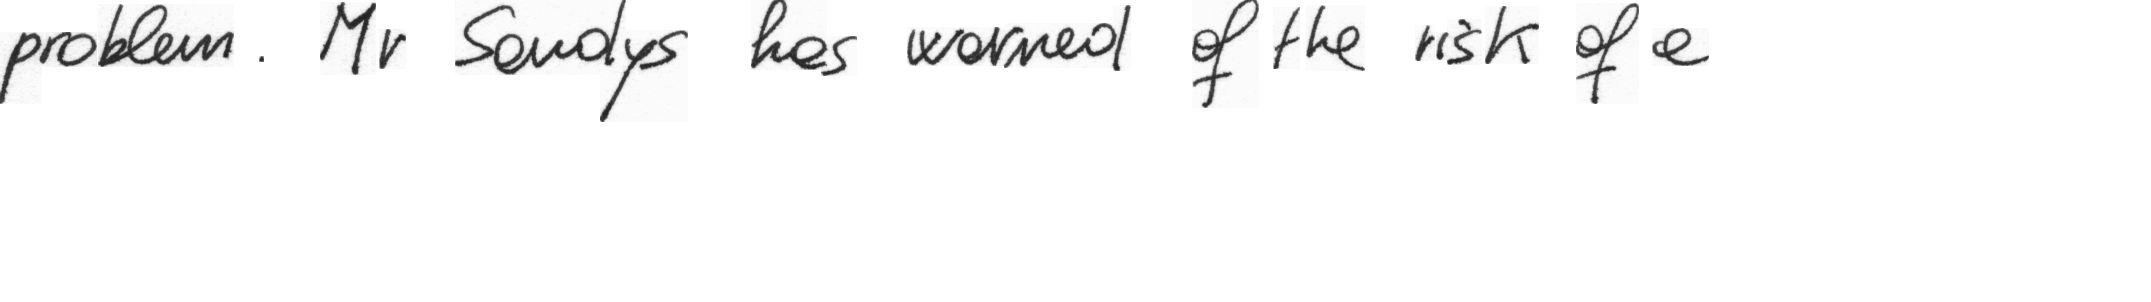 problem. Mr Sandys has warned of the risk of a